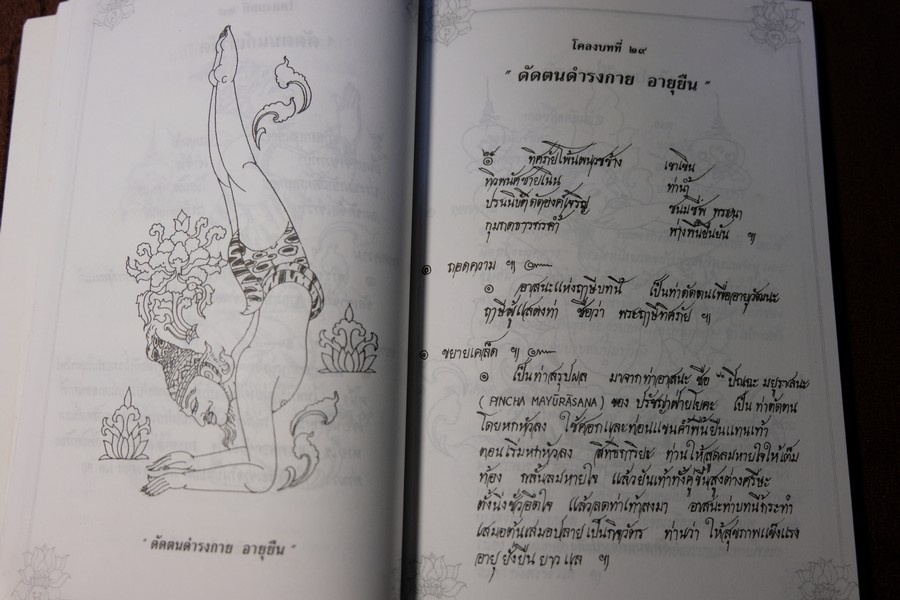 " ดัดตนดำรงกาย อายุยืน "
โคลงบทที่ ๒๙
" ดัดตนดำรงกาย อายุยืน "
๒๙
๏ ทิศภัยโพ้นพนาชช้าง เขาเขิน
ท่านำ้
ชนม์ชีพ พระนา
๏ ถอดความ ฯ
๏ อาสนะแห่งฤๅษีบทนี้ เป็นท่าดัดตนเพื่ออายุวัฒนะ
ฤๅษีผู้แสดงท่า ชื่อว่า พระฤๅษีทิศภัย ฯ
๏ ขยายเคล็ด ฯ
๏ เป็นท่าสรุปผล มาจากท่าอาสนะ ชื่อ " ปิณฉะ มยุราสนะ
( PINCHA MAYŪRĀSANA ) ของ ปรัชญาฝ่ายโยคะ เป็น ท่าดัดตน
โดยหกหัวลง ใช้ศอกและท่อนแขนค้ำพื้นยืนแทนเท้า
ตอนเริ่มหกหัวลง สิทธิการิยะ ท่านให้สูดลมหายใจให้เต็ม
ท้อง กลั้นลมหายใจ แล้วยันเท้าทั้งคู่ขึ้นสูงต่างศรีษะ
ตั้งนิ่งชั่วอึดใจ แล้วลดท่าเท้าลงมา อาสนะท่าบทนี้กระทำ
เสมอต้นเสมอปลายเป็นกิจวัตร ท่านว่า ให้สุขภาพแข็งแรง
อายุ ยั่งยืน ยาว แล ฯ